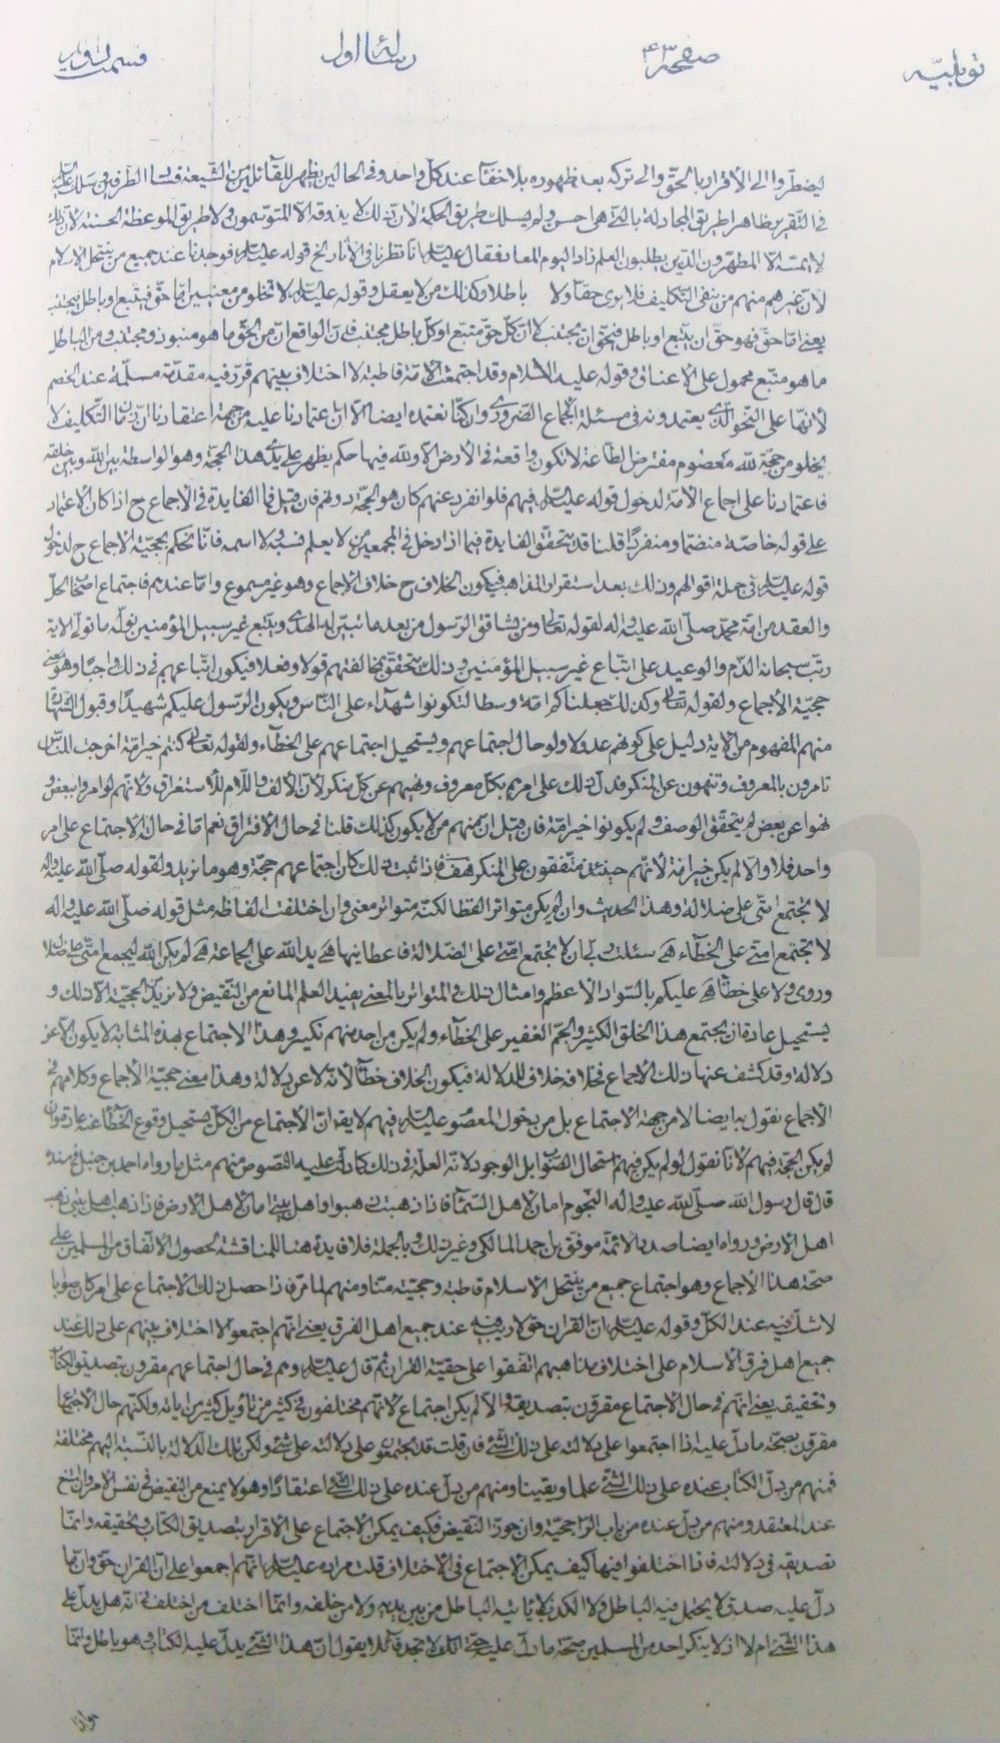 توبلیّه صفحه ۴۳ رسالهٔ اول قسمت دویم
ليضطرّوا الى الأقرار بالحقّ والى تركه بعد ظهوره بلا خفآء عند كلّ واحد وفى الحالين يظهر للقآئلين من الشّيعة فساد الطّرفين وسلك عليه
فى التّقرير ظاهرا طريق المجادلة بالّتى هى احسن ولم يسلك طريق الحكمة لأنّ ذلك لا يذوقه الّا المتوسّمون ولا طريق الموعظة الحسنة لأنّ ذلك
لا يمسّه الّا المطهّرون الّذين يطلبون العلم زاد اليوم المعاد فقال عليه السلام انا نظرنا فى الأثار الخ قوله عليه السلام فوجدنا عند جميع من ينتحل الإسلام
لأنّ غيرهم منهم من ينفى التّكليف فلا يرى حقّا ولا باطلا وكذلك من لا يعقل وقوله عليه السلام لا تخلو من معنيين امّا حقّ فيتّبع او باطل فيجتنب
يعنى امّا حقّ فهو حقّ ان يتّبع او باطل فيحقّ ان يجتنب لا انّ كلّ حقّ متّبع او كلّ باطل مجتنب فانّ الواقع انّ من الحقّ ما هو منبوذ ومجتنب ومن الباطل
ما هو متّبع محمول على الاعناق وقوله عليه السّلام وقد اجتمعت الأمّة قاطبة لا اختلاف بينهم قرّر فيه مقدّمة مسلّمة عند الخصم
لأنّها على النّحو الّذى يعتمدونه فى مسئلة الأجماع الضّرورى وان كنّا نعتمده ايضا الّا انّ اعتمادنا عليه من جهة اعتقادنا انّ زمان التّكليف لا
يخلو من حجّة للّه معصوم مفترض الطّاعة لا تكون واقعة فى الأرض الّا وللّه فيها حكم يظهر على يدى هذا الحجّة وهو الواسطة بين اللّه وبين خلقه
فاعتمادنا على اجماع الأمّة لدخول قوله عليه السلام فيهم فلو انفرد عنهم كان هو الحجّة دونهم فان قيل فما الفايدة فى الأجماع ح اذا كان الأعتماد
على قوله خاصّة منضمّا ومنفردًا قلنا قد يتحقّق الفايدة فيما اذا دخل فى المجمعين من لا يعلم نسبه ولا اسمه فانّا نحكم بحجّيّة الأجماع ح لدخول
قوله عليه السلام فى جملة اقوالهم وذلك بعد استقرار المذاهب فيكون الخلاف ح خلاف الأجماع وهو غير مسموع وامّا عندهم فاجتماع اصحاب الحلّ
والعقد من امّة محمّد صلّى اللّه عليه واله لقوله تعالى ومن يشاقق الرّسول من بعد ما تبيّن له الهدى ويتّبع غير سبيل المؤمنين نولّه ما تولّى الأية
رتّب سبحانه الذّم والوعيد على اتّباع غير سبيل المؤمنين وذلك يتحقّق بمخالفتهم قولا وفعلا فيكون اتّباعهم فى ذلك واجبًا وهو معنى
حجّيّة الأجماع ولقوله تعالى وكذلك جعلناكم امّة وسطا لتكونوا شهدآء على النّاس ويكون الرّسول عليكم شهيدًا وقبول الشّهادة
منهم المفهوم من الأية دليل على كونهم عدولا ولو حال اجتماعهم ويستحيل اجتماعهم على الخطآء ولقوله تعالى كنتم خير امّة اخرجت للنّاس
تامرون بالمعروف وتنهون عن المنكر فدلّ ذلك على امرهم بكلّ معروف ونهيهم عن كلّ منكر لأنّ الألف واللّام للأستغراق ولأنّهم لو امروا ببعض و
نهوا عن بعض لم يتحقّق الوصف ولم يكونوا خير امّة فان قيل انّ منهم من لا يكون كذلك قلنا فى حال الأفتراق نعم امّا فى حالة الأجتماع على امر
واحد فلا والّا لم يكن خير امّة لأنّهم حينئذ متّفقون على المنكر هف فاذا ثبت ذلك كان اجتماعهم حجّة وهو ما نريد ولقوله صلّى اللّه عليه واله
لا تجتمع امّتى على ضلالة وهذا الحديث وان لم يكن متواتر اللفظ الّا لكنّه متواتر معنى وان اختلفت الفاظه مثل قوله صلّى اللّه عليه واله
لا تجتمع امّتى على الخطآء هى سئلت ربّى ان لا تجتمع امّتى على الضّلالة فاعطانيها هى يد اللّه على الجماعة هى لم يكن اللّه ليجمع امّتى على ضلال
وروى ولا على خطآء هى عليكم بالسّواد الأعظم وامثال ذلك والمتواتر بالمعنى يفيد العلم المانع من النّقيض ولا نريد من الحجّيّة الّا ذلك و
يستحيل عادة ان يجتمع هذا الخلق الكثير والجمّ الغفير على الخطآء ولم يكن من احد منهم نكير وهذا الأجتماع بهذه المثابة لا يكون الّا عن
دلالة وقد كشف عنها ذلك الأجماع فخلافه خلاف للدلالة فيكون الخلاف خطآء لأنّه لا عن دلالة وهذا معنى حجّيّة الأجماع وكلامهم فى
الأجماع نقول به ايضا لا من جهة الأجتماع بل من دخول المعصوم عليه السلام فيهم لا يقال انّ الأجتماع من الكلّ يستحيل وقوع الخطآء عنه عادة وان
لم يكن الحجّة فيهم لأنّا نقول لو لم يكن فيهم استحال الصّواب بل الوجود لأنّه العلّة فى ذلك كما دلّت عليه النّصوص منهم مثل ما رواه احمد بن حنبل فى مسنده
قال قال رسول اللّه صلّى اللّه عليه واله النّجوم امان لأهل السّمآء فاذا ذهبت ذهبوا واهل بيتى امان لأهل الأرض فاذا ذهب اهل بيتى ذهب
اهل الأرض ورواه ايضا صدر الأئمّة موفّق بن احمد المالكى وغير ذلك وبالجملة فلا فايدة هنا للمناقشة لحصول الأتّفاق من المسلمين على
صحّة هذا الأجماع وهو اجتماع جميع من ينتحل الأسلام قاطبة وحجّيته منّا ومنهم لما مرّ فاذا حصل ذلك الأجتماع على امر كان صوابا
لا شكّ فيه عند الكلّ وقوله عليه السلام انّ القران حقّ لا ريب فيه عند جميع اهل الفرق يعنى انّهم اجتمعوا لا اختلاف بينهم على ذلك عند
جميع اهل فرق الأسلام على اختلاف مذاهبهم اتّفقوا على حقيّة القران ثم قال عليه السلام وهم فى حال اجتماعهم مقرّون بتصديق الكتاب
وتحقيقه يعنى انّهم فى حال الأجتماع مقرّون بتصديقه والّا لم يكن اجتماع لأنّهم مختلفون فى كثير من تأويل كثير من اياته ولكنّهم حال الأجتماع
مقرّون بصحّة ما دلّ عليه اذا اجتمعوا على دلالته على ذلك الشّئ فان قلت قد يجتمعوا على دلالته على شئ ولكن تلك الدّلالة بالنّسبة اليهم مختلفة
فمنهم من دلّ الكتاب عنده على ذلك الشّئ علما ويقينا ومنهم من دلّ عنده على ذلك الشّئ اعتقادًا وهو لا يمنع من النّقيض فى نفس الأمر وان امتنع
عند المعتقد ومنهم من دلّ عنده من باب الرّاجحيّة وان جوّز النّقيض فكيف يمكن الأجتماع على الأقرار بتصديق الكتاب وتحقيقه وانّما
تصديقه فى دلالته فاذا اختلفوا فيها كيف يمكن الأجتماع فى الأختلاف قلت مراده عليه السلام انّهم اجمعوا على انّ القران حقّ وانّ ما
دلّ عليه صدق لا يحتمل فيه الباطل ولا الكذب لا يأتيه الباطل من بين يديه ولا من خلفه وانّما اختلف من اختلف فى انّه هل يدلّ على
هذا الشّئ ام لا اذ لا ينكر احد من المسلمين صحّة ما دلّ عليه حتّى انّك لا تجد قآئلا يقول انّ هذا الشّئ يدلّ عليه الكتاب وهو باطل وانّما